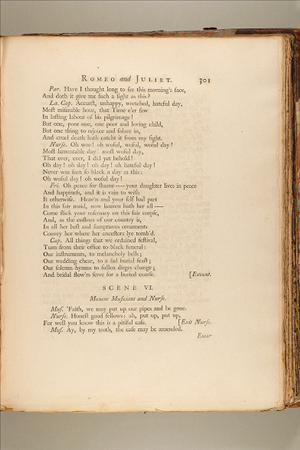 ROMEO and JULIET. 301
Par. Have I thought long to see this morning's face,
And doth it give me such a sight as this?
La. Cap. Accurst, unhappy, wretched, hateful day,
Most miserable hour, that Time e'er saw
In lasting labour of his pilgrimage!
But one, poor one, one poor and loving child,
But one thing to rejoice and solace in,
And cruel death hath catcht it from my sight.
Nurse. Oh woe! oh woful, woful, woful day!
Most lamentable day! most woful day,
That ever, ever, I did yet behold!
Oh day! oh day! oh day! oh hateful day!
Never was seen so black a day as this:
Oh woful day! oh woful day!
Fri. Oh peace for shame — your daughter lives in peace
And happiness, and it is vain to wish
It otherwise. Heav'n and your self had part
In this fair maid, now heaven hath her all —
Come stick your rosemary on this fair corpse,
And, as the custom of our country is,
In all her best and sumptuous ornaments
Convey her where her ancestors lye tomb'd.
Cap. All things that we ordained festival,
Turn from their office to black funeral:
Our instruments, to melancholy bells;
Our wedding chear, to a sad burial feast;
Our solemn hymns to sullen dirges change;
And bridal flow'rs serve for a buried coarse. [Exeunt.
SCENE VI.
Manent Musicians and Nurse.
Mus. 'Faith, we may put up our pipes and be gone.
Nurse. Honest good fellows: ah, put up, put up,
For well you know this is a pitiful case. [Exit Nurse.
Mus. Ay, by my troth, the case may be amended.
Enter